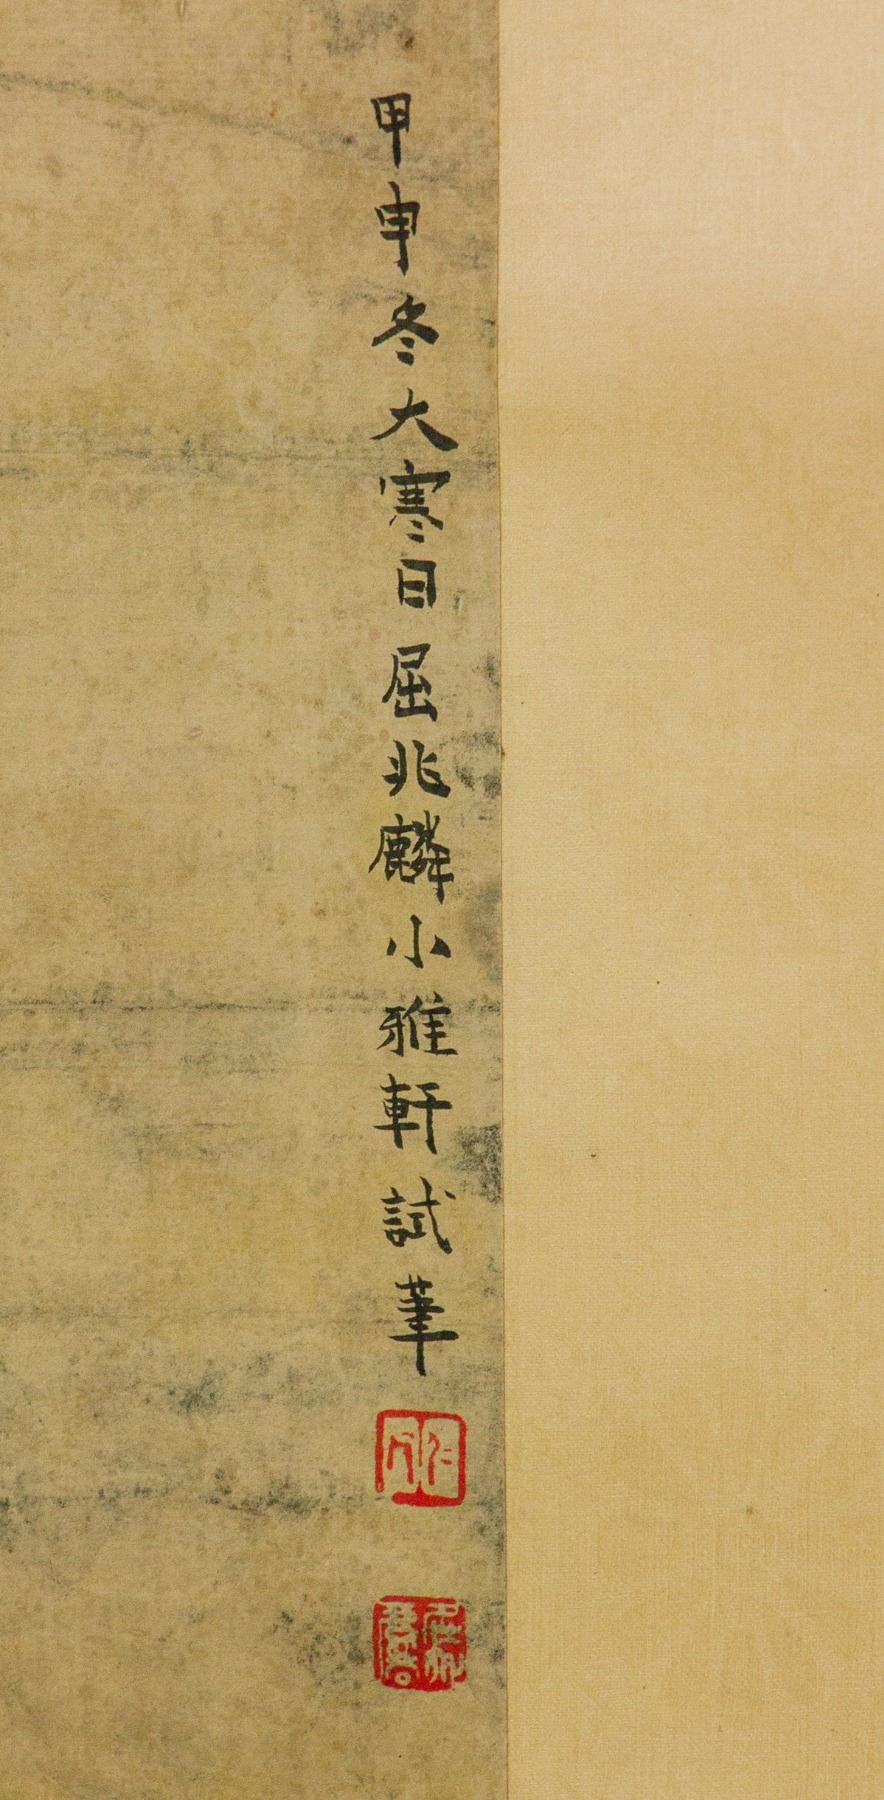 甲申冬大寒日屈兆麟小雅軒試筆